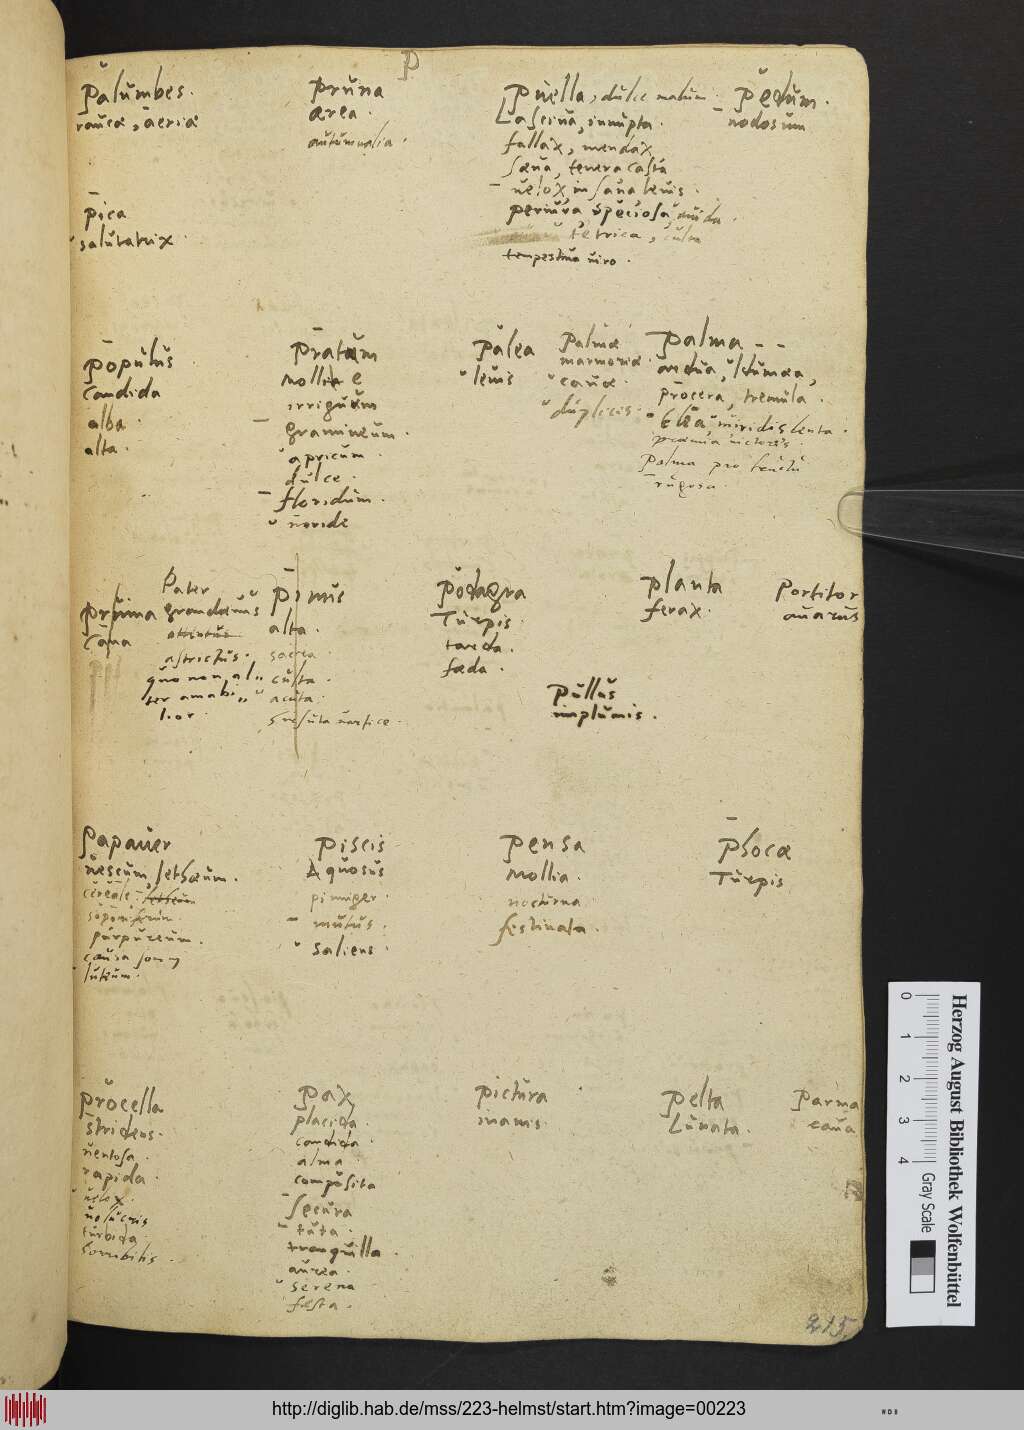 P
Palumbes.
raucæ, aeriæ
Pruna
ærea.
autumnalia.
Puella, dulce malum.
Lasciua, innupta.
fallax, mendax
sæua, tenera casta
uelox, insana leuis.
periura, speciosa, auida.
tetrica, culta
tempestiua uiro.
Pedum.
nodosum
Pica
salutatrix
Populus
candida
alba.
alta.
Pratum
Mollia
irriguum
gramineum.
apricum.
dulce.
floridum.
uiride
Palea
leuis
Palmæ
marmoreæ
cauæ.
duplices.
Palma
ardua, Idumæa,
procera, tremula.
Elea, uiridis lenta.
præmia uictoris.
Palma pro fructu
rugosa.
Pruina
Cana
Pater
grandæuus
astrictus.
quo non al„
ter amabi„
lior.
Pinus
alta.
sacra.
culta.
acuta.
Podagra
Turpis
tarda.
fæda.
Planta
ferax.
Portitor
auarus
Pullus
implumis.
Papauer
uescum, lethæum.
cereale
soporiferum
purpureum.
causa somnj
luteum.
Piscis
Aquosus
pinniger
mutus.
Saliens.
Pensa
Mollia.
nocturna
festinata.
Phocæ
Turpis
Procella
Stridens.
uentosa.
rapida.
uelox.
uolucris
turbida
horribilis.
Pax
placida.
candida.
alma
composita
Secura
tuta.
tranquilla.
aurea.
serena
festa.
Pictura
inanis.
Pelta
Lunata.
Parma
caua
215
Herzog August Bibliothek Wolfenbüttel
Gray Scale
0
1
2
3
4
http://diglib.hab.de/mss/223-helmst/start.htm?image=00223